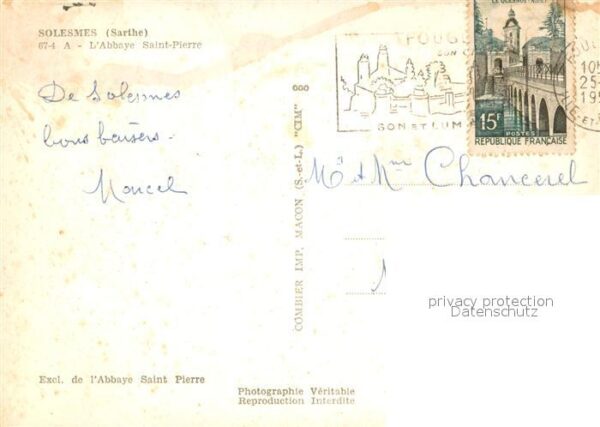 SOLESMES (Sarthe)
67-4 A - L'Abbaye Saint-Pierre
De Solesmes
bons baisers.
Marcel
COMBIER IMP. MACON (S.-et-L.) "CIM"
FOUG
SON
SON ET LUM
LE QUESNOY - NORD
15F
POSTES
REPUBLIQUE FRANÇAISE
10H
25-
195
Mr et Mme Chancerel
privacy protection
Datenschutz
Excl. de l'Abbaye Saint Pierre
Photographie Véritable
Reproduction Interdite